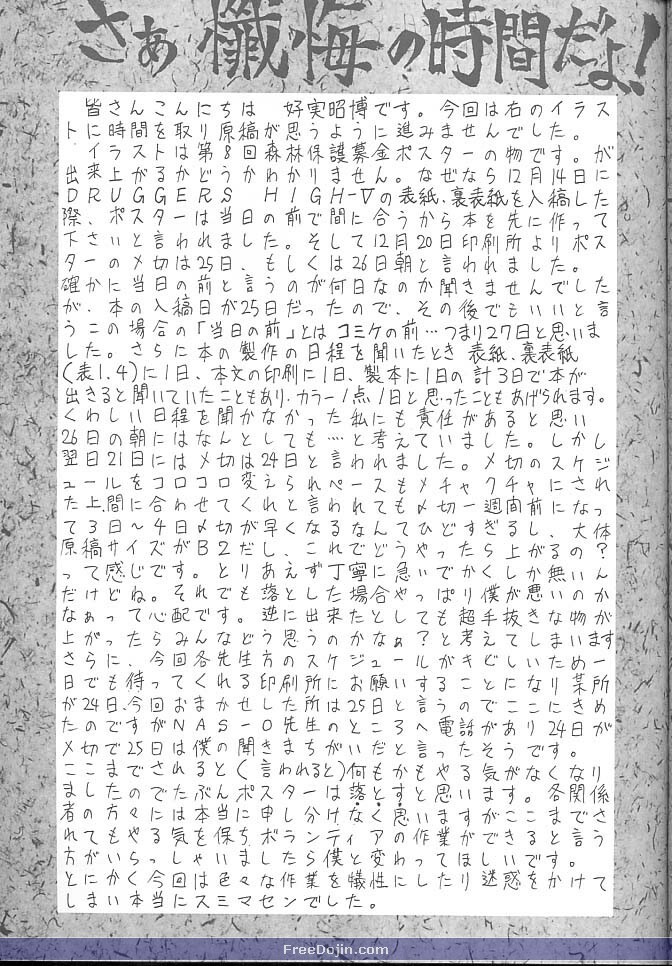 さあ懺悔の時間だよ!
皆さんこんにちは 好実昭博です。今回は右のイラス
トに時間を取り原稿が思うように進みませんでした。
イラストは第8回森林保護募金ポスターの物です。が
出来上がるかどうかわかりません。なぜなら12月14日に
DRUGGERS HIGH-Vの表紙、裏表紙を入稿した
際、ポスターは当日の前で間に合うから本を先に作って
下さいと言われました。そして12月20日印刷所よりポス
ターの〆切は25日、もしくは26日朝と言われました。
確かに当日の前と言うのが何日なのか聞きませんでした
が、本の入稿日が25日だったので、その後でもいいと言
うこの場合の「当日の前」とはコミケの前…つまり27日と思いま
した。さらに本の製作の日程を聞いたとき 表紙、裏表紙
(表1.4)に1日、本文の印刷に1日、製本に1日の計3日で本が
出きると聞いていたこともあり、カラー1点1日と思ったこともあげられます。
くわしい日程を聞かなかった私にも責任があると思い
26日の朝にはなんとしても…と考えていました。しかし
翌日21日には〆切は24日と言われました。〆切のスケジ
ュールをコロコロ変えられペースもメチャクチャにされ
た上、間に合わせてくれと言われても〆切一週間前になっ
て3日～4日〆切が早くなるなんてひどすぎるし、大体
原稿サイズがB2だし、これでどうやったら上がるの?
って感じです。とりあえず丁寧に急いでかくしか無いん
だけどね。それでも落とした場合やっぱり僕が悪いのか
なぁって心配です。逆に出来たとしても超手抜きな物が
上がったらみんなどう思うのかなぁ?と考えてしまいます
さらに、今回各先生方のスケジュールがきどしいため一
日でも待ってくれる印刷所にお願いすることになり某所
が24日、今回おまかせした所は25日と言うのでここにきめ
たのですがNAS-O先生のところへ電話があり24日が
〆切で25日は僕の聞きまちがいだと言ったそうです。
ここまでされると(言われると)何もかもやる気がなくなり
ましたのでたぶんポスターは落とすと思います。各関係
者の方々には本当に申し分けなく思いますがここまでさ
れてもやる気を保ちボランティアの作業ができると言う
方がいらっしゃいましたら僕と変わってほしいです。
とにかく今回は色々な作業を犠性にしたり迷惑をかけて
しまい本当にスミマセンでした。
FreeDojin.com